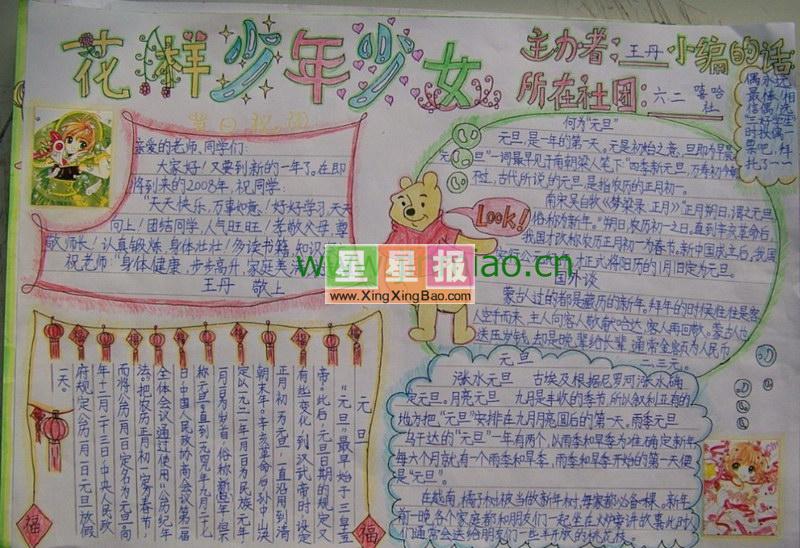 花样少年少女
主办者：王丹
所在社团：六二 嘻哈社
小编的话
节日祝福
亲爱的老师、同学们：
大家好！又要到新的一年了。在即
将到来的2008年，祝同学：
"天天快乐，万事如意，好好学习，天天
向上！团结同学，人气旺旺！孝敬父母，尊
敬师长！认真锻炼，身体壮壮！多读书籍，知识
祝老师"身体健康，步步高升，家庭美满
王丹 敬上
何为"元旦"
元旦，是一年的第一天。元是初始之意，旦即今早晨
"元旦"一词最早见于南朝梁人笔下"四季新元旦，万寿初今朝
古代所说的元旦，是指农历的正月初一。
南宋吴自牧《梦梁录 正月》"正月朔日，谓之元旦
俗称为新年。"朔日，农历初一之日。直到辛亥革命后，
我国才改称农历正月初一为春节。新中国成立后，我国
才正式将阳历的1月1日定为元旦。
国外谈
蒙古人过的都是藏历的新年。拜年的时候往往是客
人空手而来，主人向客人敬献哈达，客人再回献。蒙古人也
送压岁钱，却是晚辈给长辈，通常金额为人民币
一二三元。
元旦
涨水元旦 古埃及根据尼罗河涨水确
定元旦。月亮元旦 九月是丰收的季节，所以叙利亚有的
地方把"元旦"安排在九月月亮圆后的第一天。雨季元旦
马干达的"元旦"一年有两个，以雨季和旱季为准，确定新年
每六个月就有一个雨季和旱季，雨季和旱季开始的第一天便
是"元旦"。
在越南，橘子树被当做新年树，每家都必备一棵。新年
前一晚各个家庭都和朋友们一起坐在火炉旁讲故事，此时，
们通常会送给朋友们一些半开放的桃花枝。
元旦
"元旦"最早始于三皇五
帝。此后，元旦日期的规定又
有些变化，到汉武帝时设定
正月初一为元旦，一直沿用到清
朝末年。辛亥革命后，孙中山决
定以一九一二年一月一日为民族元年，
一月一日为岁首，俗称新年，但不
称元旦。直到一九四九年九月二十七
日，中国人民政治协商会议第一届
全体会议通过使用"公历纪年
法"。把农历正月初一定为春节，
而将公历一月一日定名为元旦。同
年十二月二十三日，中央人民政
府规定公历一月一日元旦放假
一天。
Look!
福
福
星星报
www.XingXingBao.com